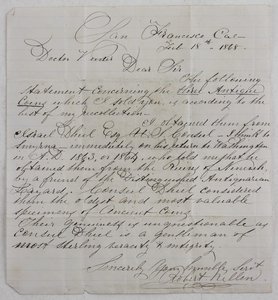 San Francisco, Cal
Feb. 18th 1868.
Doctor
Dear Sir
The following
Statement Concerning the three Antique
Coins which I sold you, is according to the
best of my recollection.
I obtained them from
Israel Diehl Esq. U.S. Consul
Smyrna immediately on his return to Washington
in A.D. 1863, or 1864, who told me that he
obtained them from the Ruins of Nineveh
by a friend of the Distinguished Antiquarian
Layard, Consul Diehl Considered
them the oldest and most valuable
specimens of Ancient Coins.
Their genuineness is unquestionable as
Consul Diehl is a gentleman of
most sterling veracity & integrity.
Sincerely Your Humble Servt
Robert